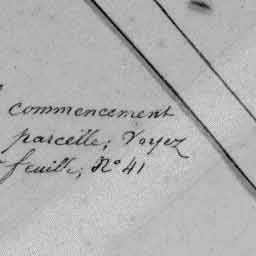 commencement
parcelle; Voyez
feuille; N° 41